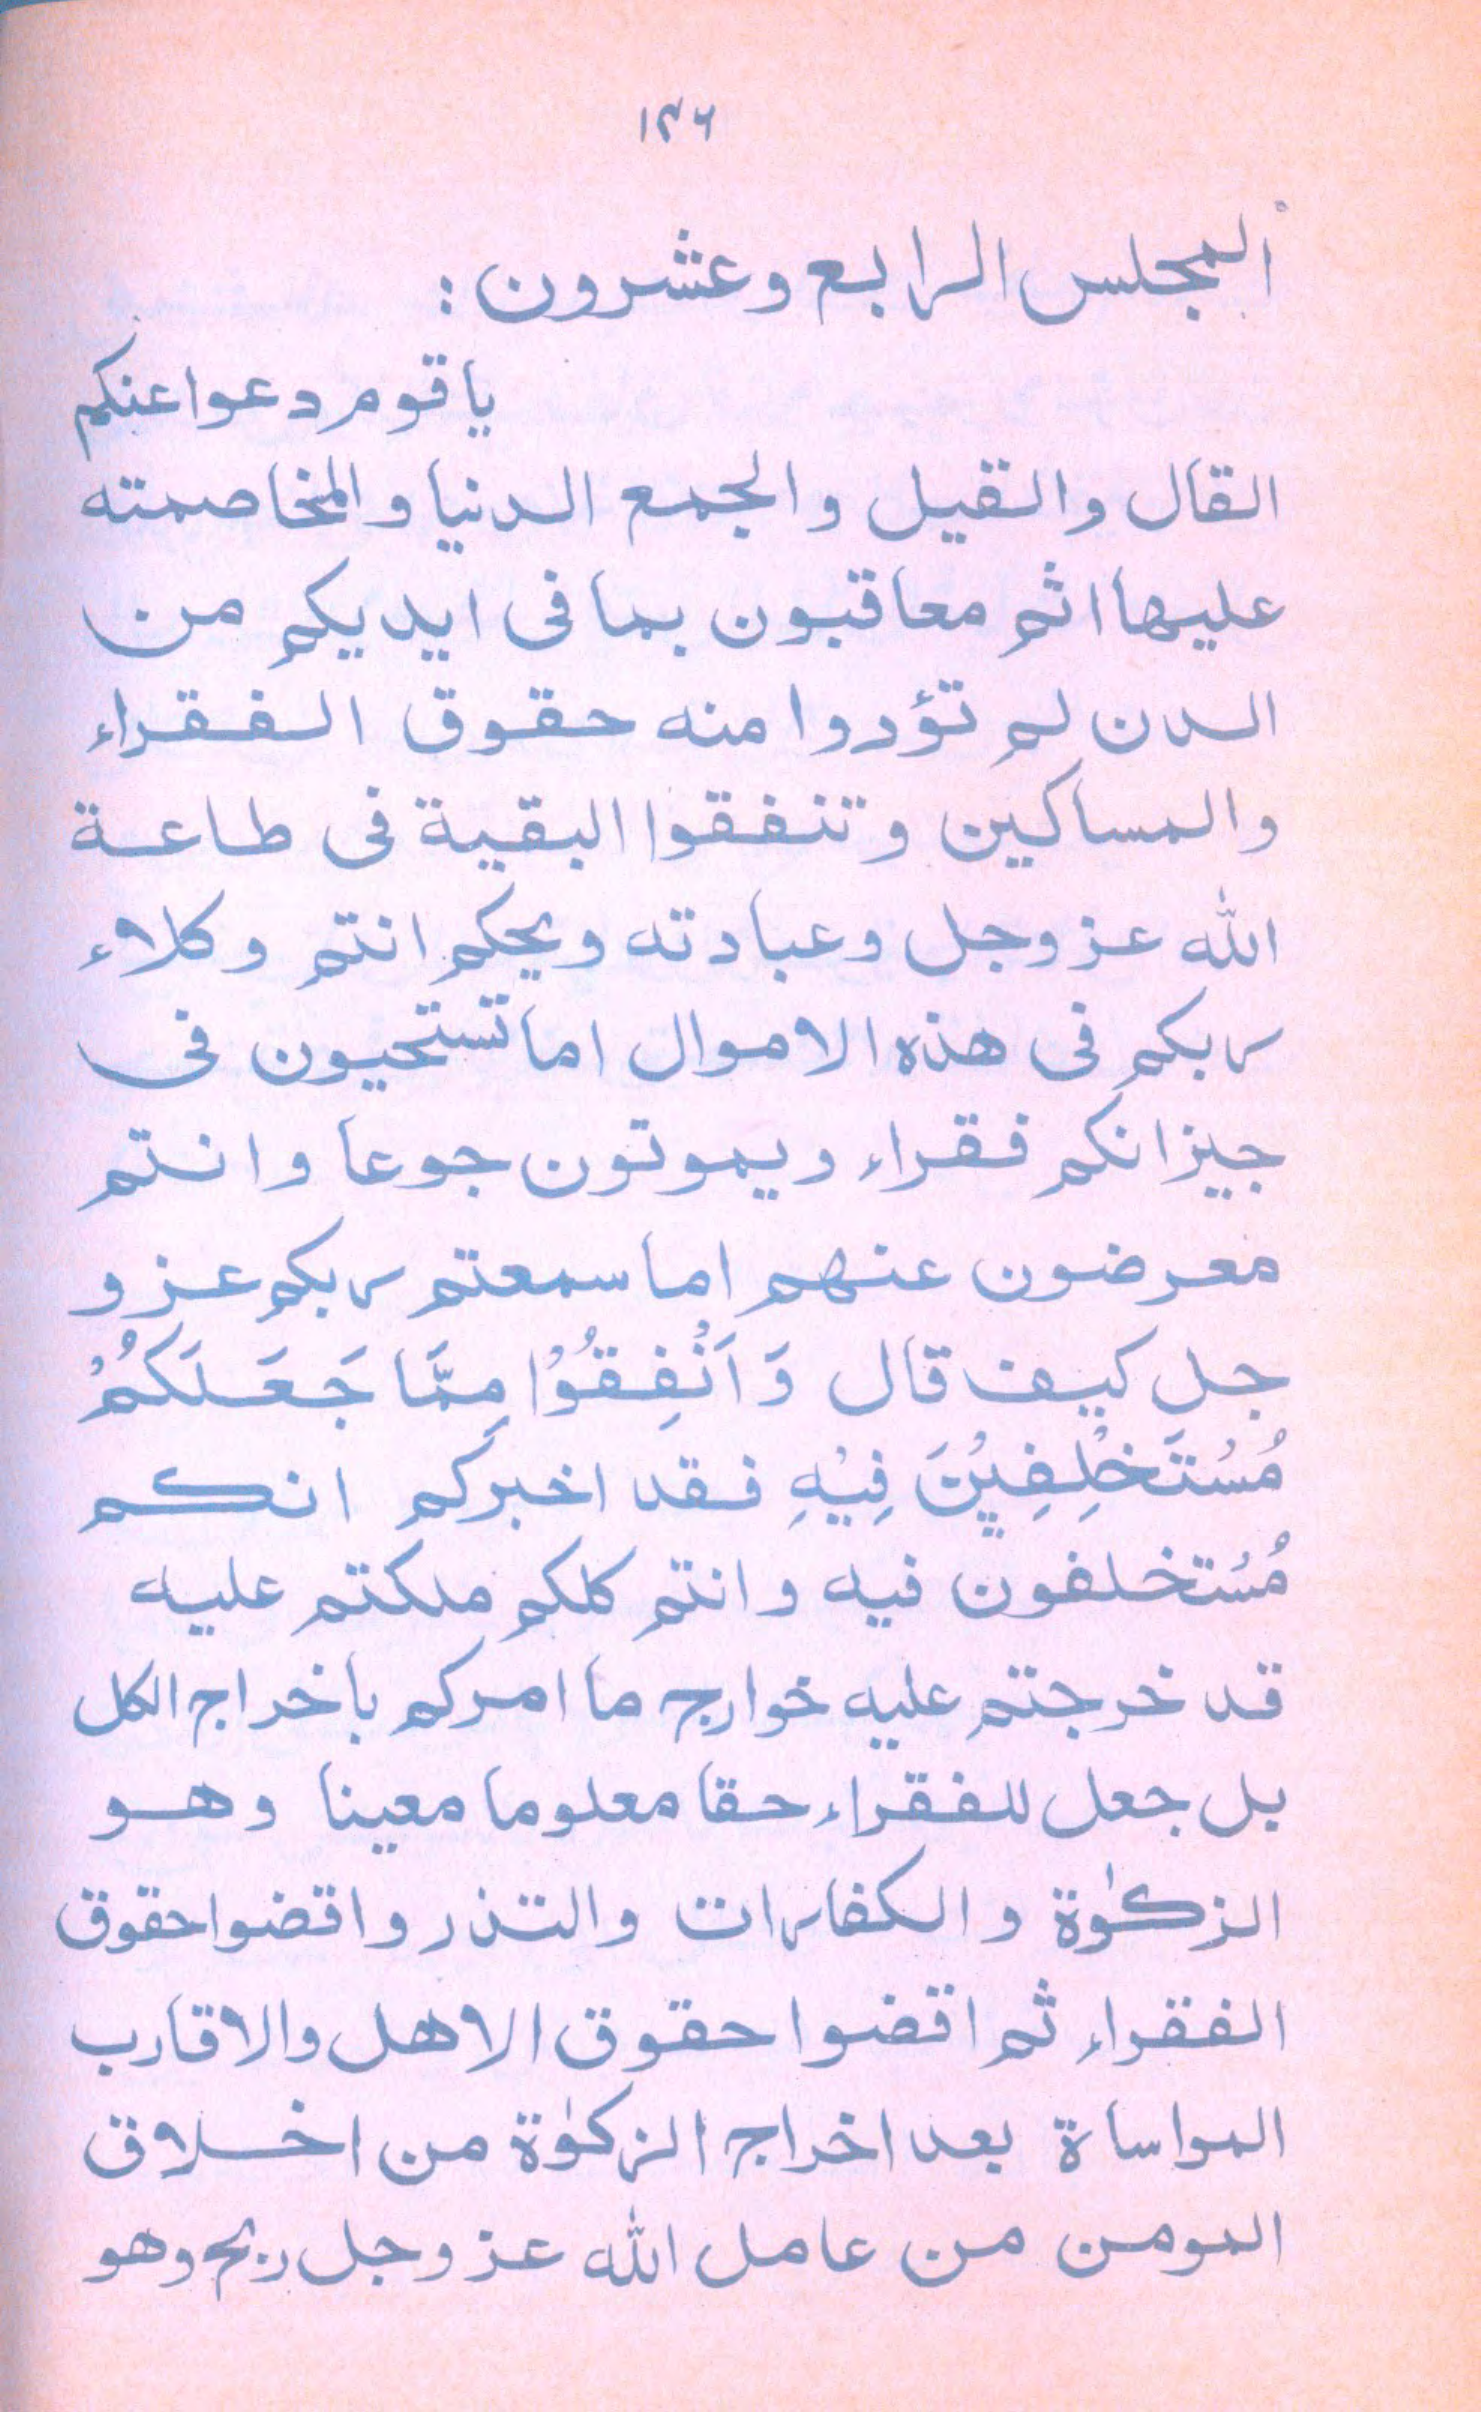 ١٣٦
المجلس الرابع وعشرون :
ياقوم دعوا عنكم
القال والقيل والجمع الدنيا والمخاصمته
عليها اثم معاقبون بما فى ايديكم من
الدن لم تؤدوا منه حقوق الفقراء
والمساكين وتنفقوا البقية فى طاعة
الله عز وجل وعبادته ويحكم انتم وكلاء
ربكم فى هذه الاموال اما تستحيون فى
جيزانكم فقراء ويموتون جوعا وانتم
معرضون عنهم اما سمعتم ربكم عز و
جل كيف قال وَ اَنْفِقُوْا مِمَّا جَعَلَكُمْ
مُسْتَخْلِفِيْنَ فِيْهِ فقد اخبركم انكم
مُسْتخلفون فيه وانتم كلكم ملكتم عليه
قد خرجتم عليه خوارج ما امركم باخراج الكل
بل جعل للفقراء حقا معلوما معينا وهو
الزكوٰة والكفارات والتذر واقضوا حقوق
الفقراء ثم اقضوا حقوق الاهل والاقارب
المواساة بعد اخراج الزكوٰة من اخلاق
المومن من عامل الله عز وجل ربح وهو